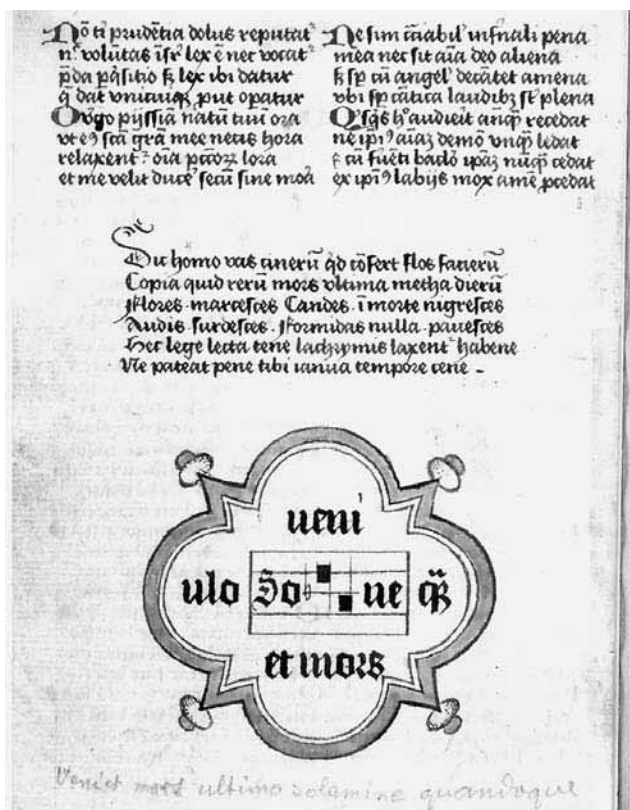 Nō prudētia dolus reputat
volūtas lex ē nec vocat
lex ibi datur
dat vnicuiqꝫ put opatur
O vgo pijssīa natū tuū ora
vt e9 scā grā mee necis hora
relaxent oīa pctoꝝ lora
et me velit duce' secū sine moā
Ne sim infnali pena
mea nec sit aīa deo aliena
sp cū angel' decātet amena
vbi sp cātica laudibꝫ st' plena
audieit anqꝫ recedat
ne ipi9 aīaꝫ demō vnqꝫ ledat
cū baclo ipaꝫ nūqꝫ cedat
ex ipi9 labijs mox amē pcedat
Dic homo vas cinerū qd cōfert flos facierū
Copia quid rerū mors vltima metha dierū
Flores . marcesces Candes . ī morte nigresces
Audis . surdesces . Formidas nulla . pauesces
Hec lege lecta tene lachrymis laxent' habene
Ne pateat pene tibi ianua tempore cene
ueni
ulo So ue qꝫ
et mors
Veniet mors ultimo solamine quandoque